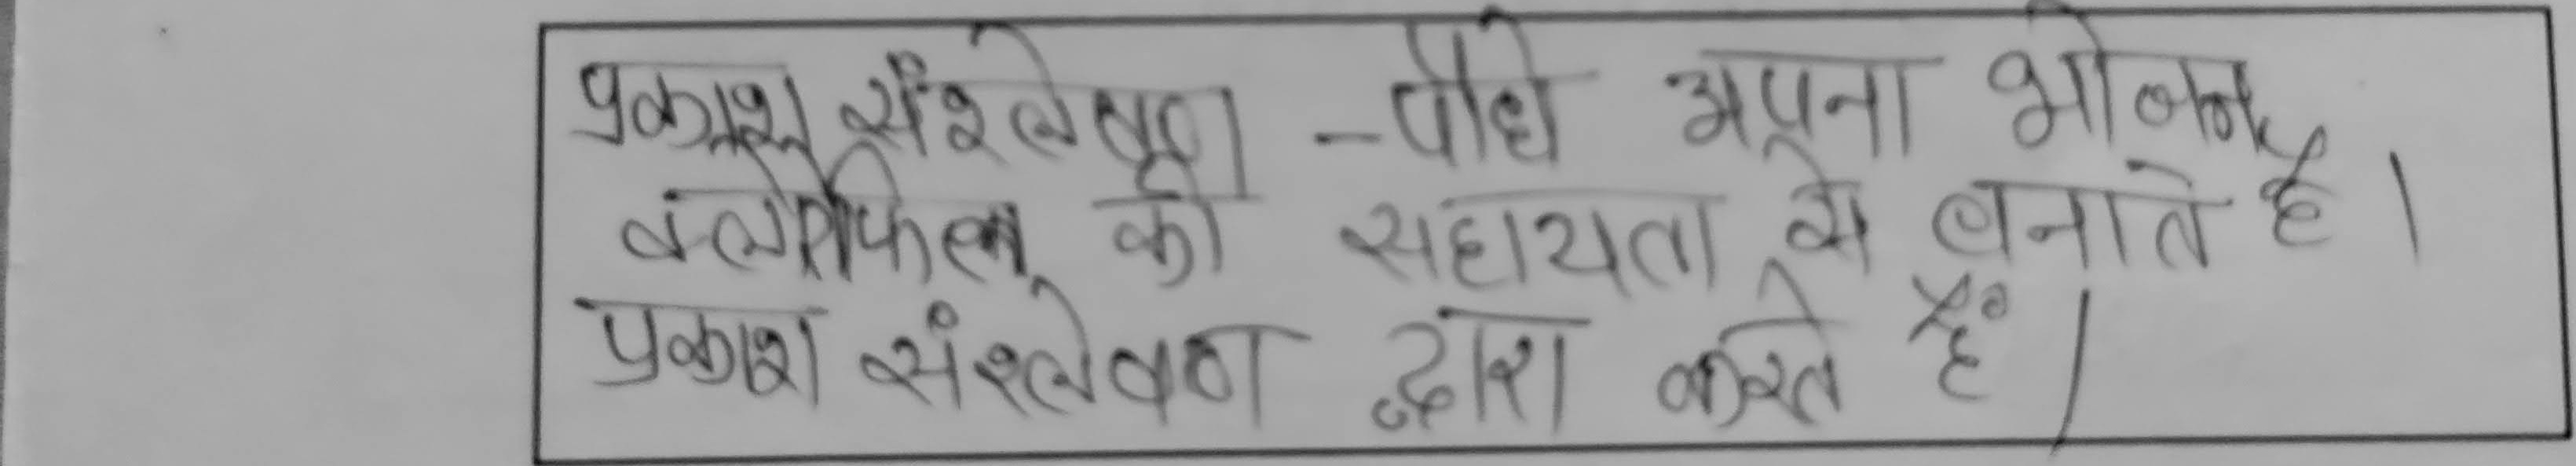 प्रकाश संश्लेषण - पौधे अपना भोजन
क्लोरोफिल की सहायता से बनाते है।
प्रकाश संश्लेषण द्वारा करते हैं।